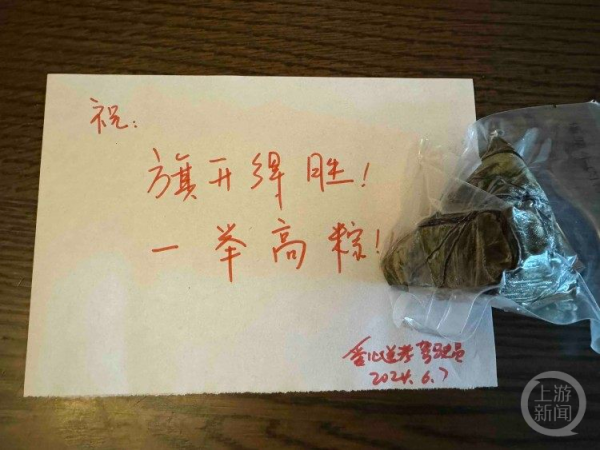 祝:
旗开得胜!
一举高粽!
爱心送考驾驶员
2024.6.7
上游新闻